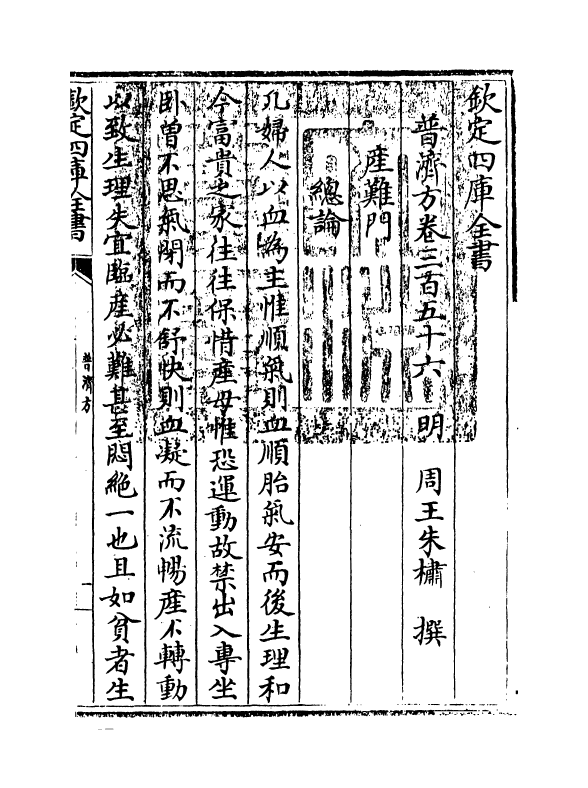 欽定四庫全書
普濟方卷三百五十六　明　周王朱橚　撰
産難門
總論
凡婦人以血為主惟順氣則血順胎氣安而後生理和
今富貴之家往往保惜産母惟恐運動故禁出入專坐
臥曽不思氣閉而不舒快則血凝而不流暢産不轉動
以致生理失宜臨産必難甚至悶絶一也且如貧者生
欽定四庫全書
普濟方
一